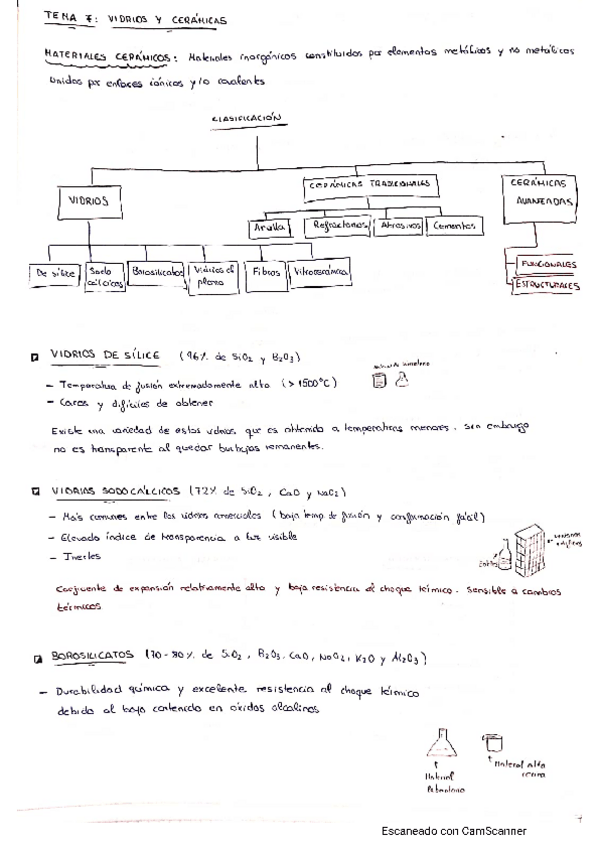 TEMA 7: VIDRIOS Y CERÁMICAS
MATERIALES CERÁMICOS: Materiales inorgánicos constituidos por elementos metálicos y no metálicos
unidos por enlaces iónicos y/o covalentes
CLASIFICACIÓN
VIDRIOS
CERÁMICAS TRADICIONALES
CERÁMICAS
AVANZADAS
Arcilla
Refractarios
Abrasivos
Cementos
De sílice
Sodo
cálcicos
Borosilicatos
Vidrios al
plomo
Fibras
Vitrocerámica
FUNCIONALES
ESTRUCTURALES
VIDRIOS DE SÍLICE (96% de SiO2 y B2O3)
- Temperatura de fusión extremadamente alta (>1500°C)
- Caros y difíciles de obtener
Existe una variedad de estos vidrios que es obtenido a temperaturas menores. Sin embargo
no es transparente al quedar burbujas remanentes.
VIDRIOS SODOCÁLCICOS (72% de SiO2, CaO y
- Más comunes entre los vidrios comerciales (baja temp de fusión y conformación fácil)
- Elevado índice de transparencia a luz visible
- Inertes
Coeficiente de expansión relativamente alto y baja resistencia al choque térmico. Sensible a cambios
térmicos
BOROSILICATOS (70-80% de SiO2, B2O3, CaO, K2O y Al2O3)
- Durabilidad química y excelente resistencia al choque térmico
debido al bajo contenido en óxidos alcalinos
Material
Material alta
7
Escaneado con CamScanner